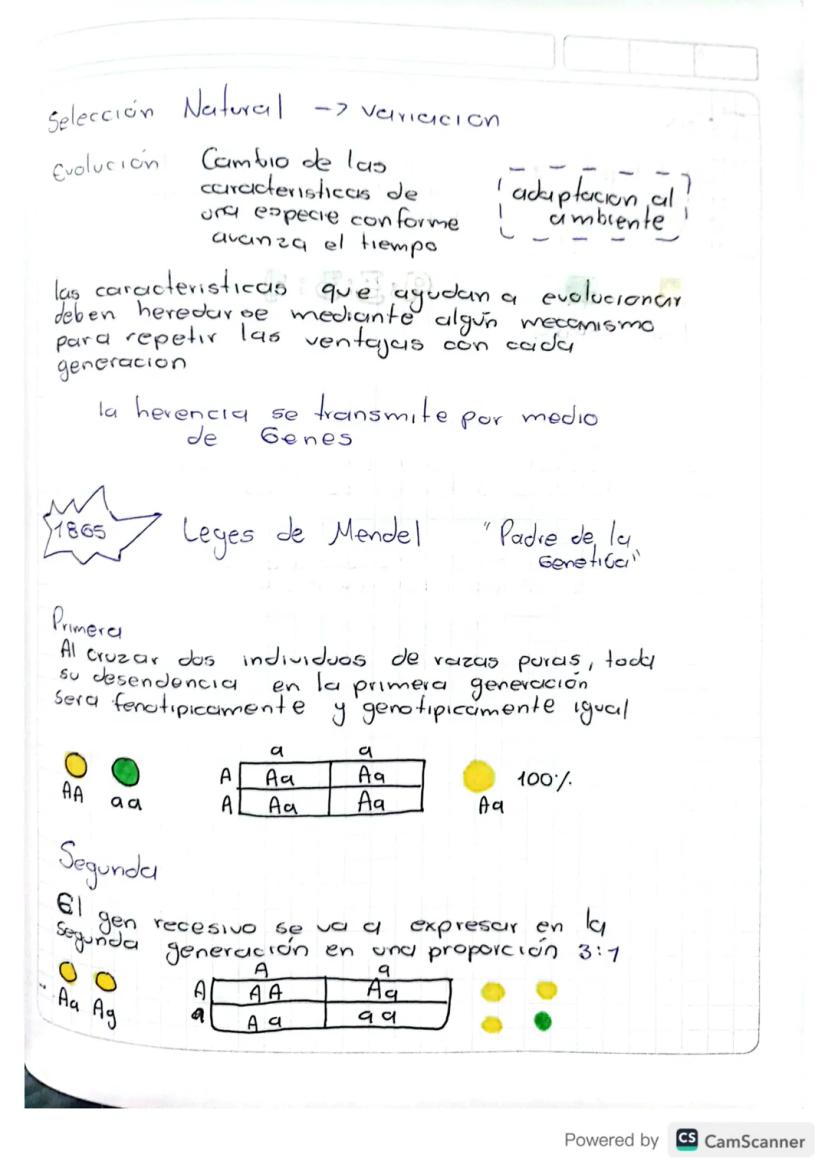 Selección Natural -> variacion
Evolución Cambio de las
caracteristicas de
una especie conforme
avanza el tiempo
adaptacion al
ambiente
las caracteristicas que ayudan a evolucionar
deben heredarse mediante algún mecanismo
para repetir las ventajas con cada
generacion
la herencia se transmite por medio
de Genes
1865 Leyes de Mendel "Padre de la
Genetica"
Primera
Al cruzar dos individuos de razas puras, toda
su desendencia en la primera generación
Sera fenotipicamente y genotipicamente igual
a a
A Aa Aa
A Aa Aa
AA aa
100%
Aa
Segunda
El gen recesivo se va a expresar en la
Segunda generación en una proporción 3:1
A a
A AA Aa
a Aa aa
Aa Aa
Powered by CS CamScanner